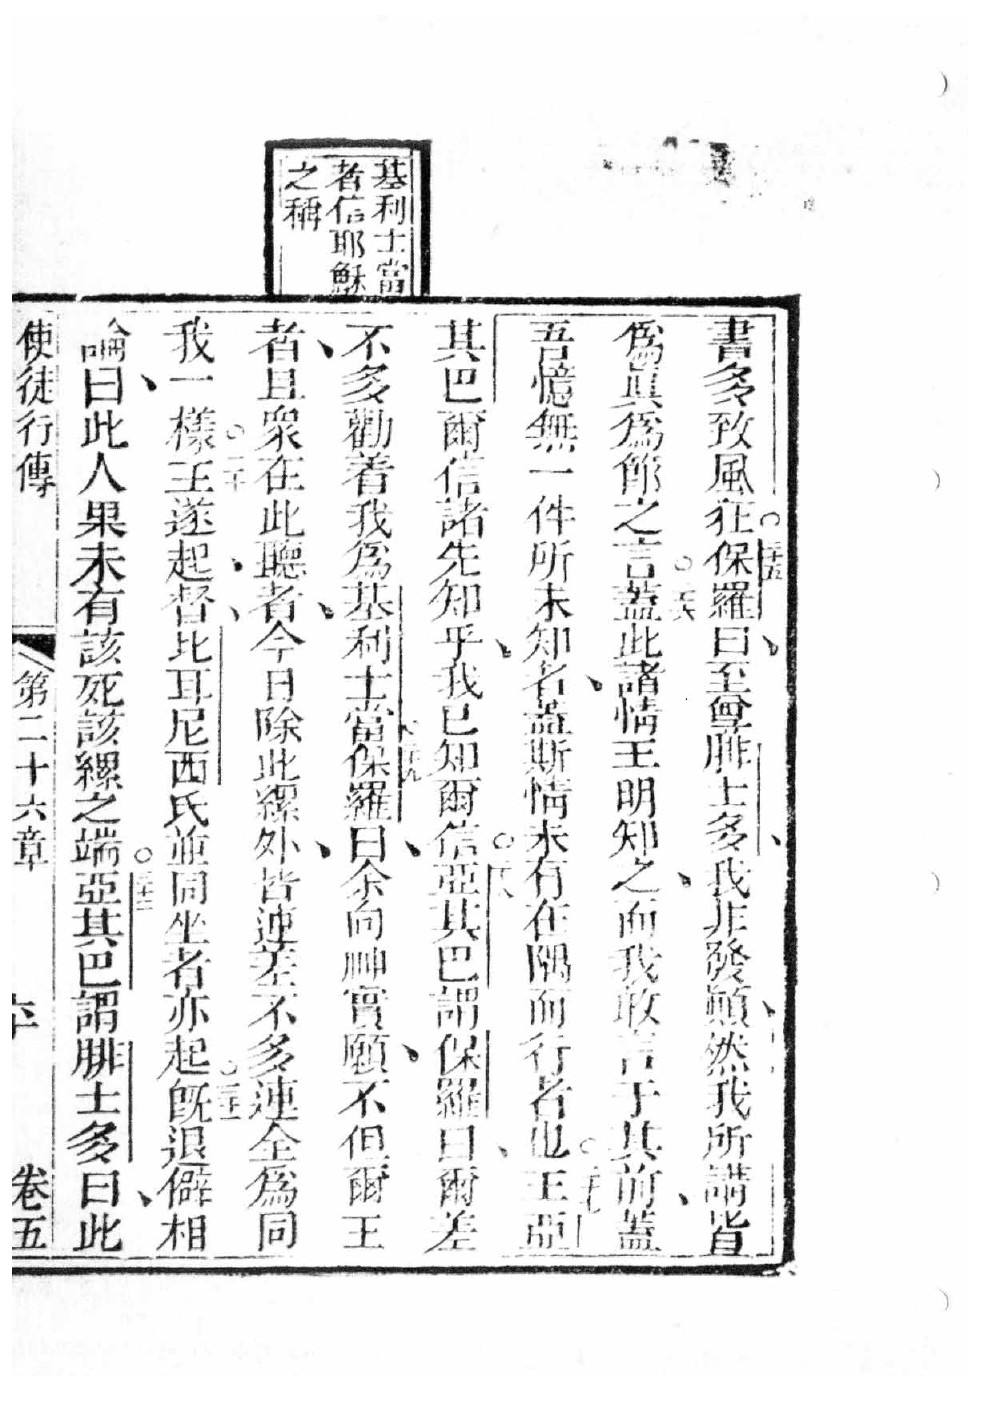 基利士當
者信耶穌
之稱
書多致風狂保羅曰至尊腓士多我非發顛然我所講皆
爲眞爲節之言蓋此諸情王明知之而我敢言于其前蓋
吾憶無一件所未知者蓋斯情未有在隅而行者也王亞
其巴爾信諸先知乎我已知爾信亞其巴謂保羅曰爾差
不多勸着我爲基利士當保羅曰余向神實願不但爾王
者且衆在此聽者今日除此縲外皆連差不多連全爲同
我一樣王遂起督比耳尼西氏並同坐者亦起旣退僻相
論曰此人果未有該死該縲之端亞其巴謂腓士多曰此
使徒行傳 第二十六章 卷五